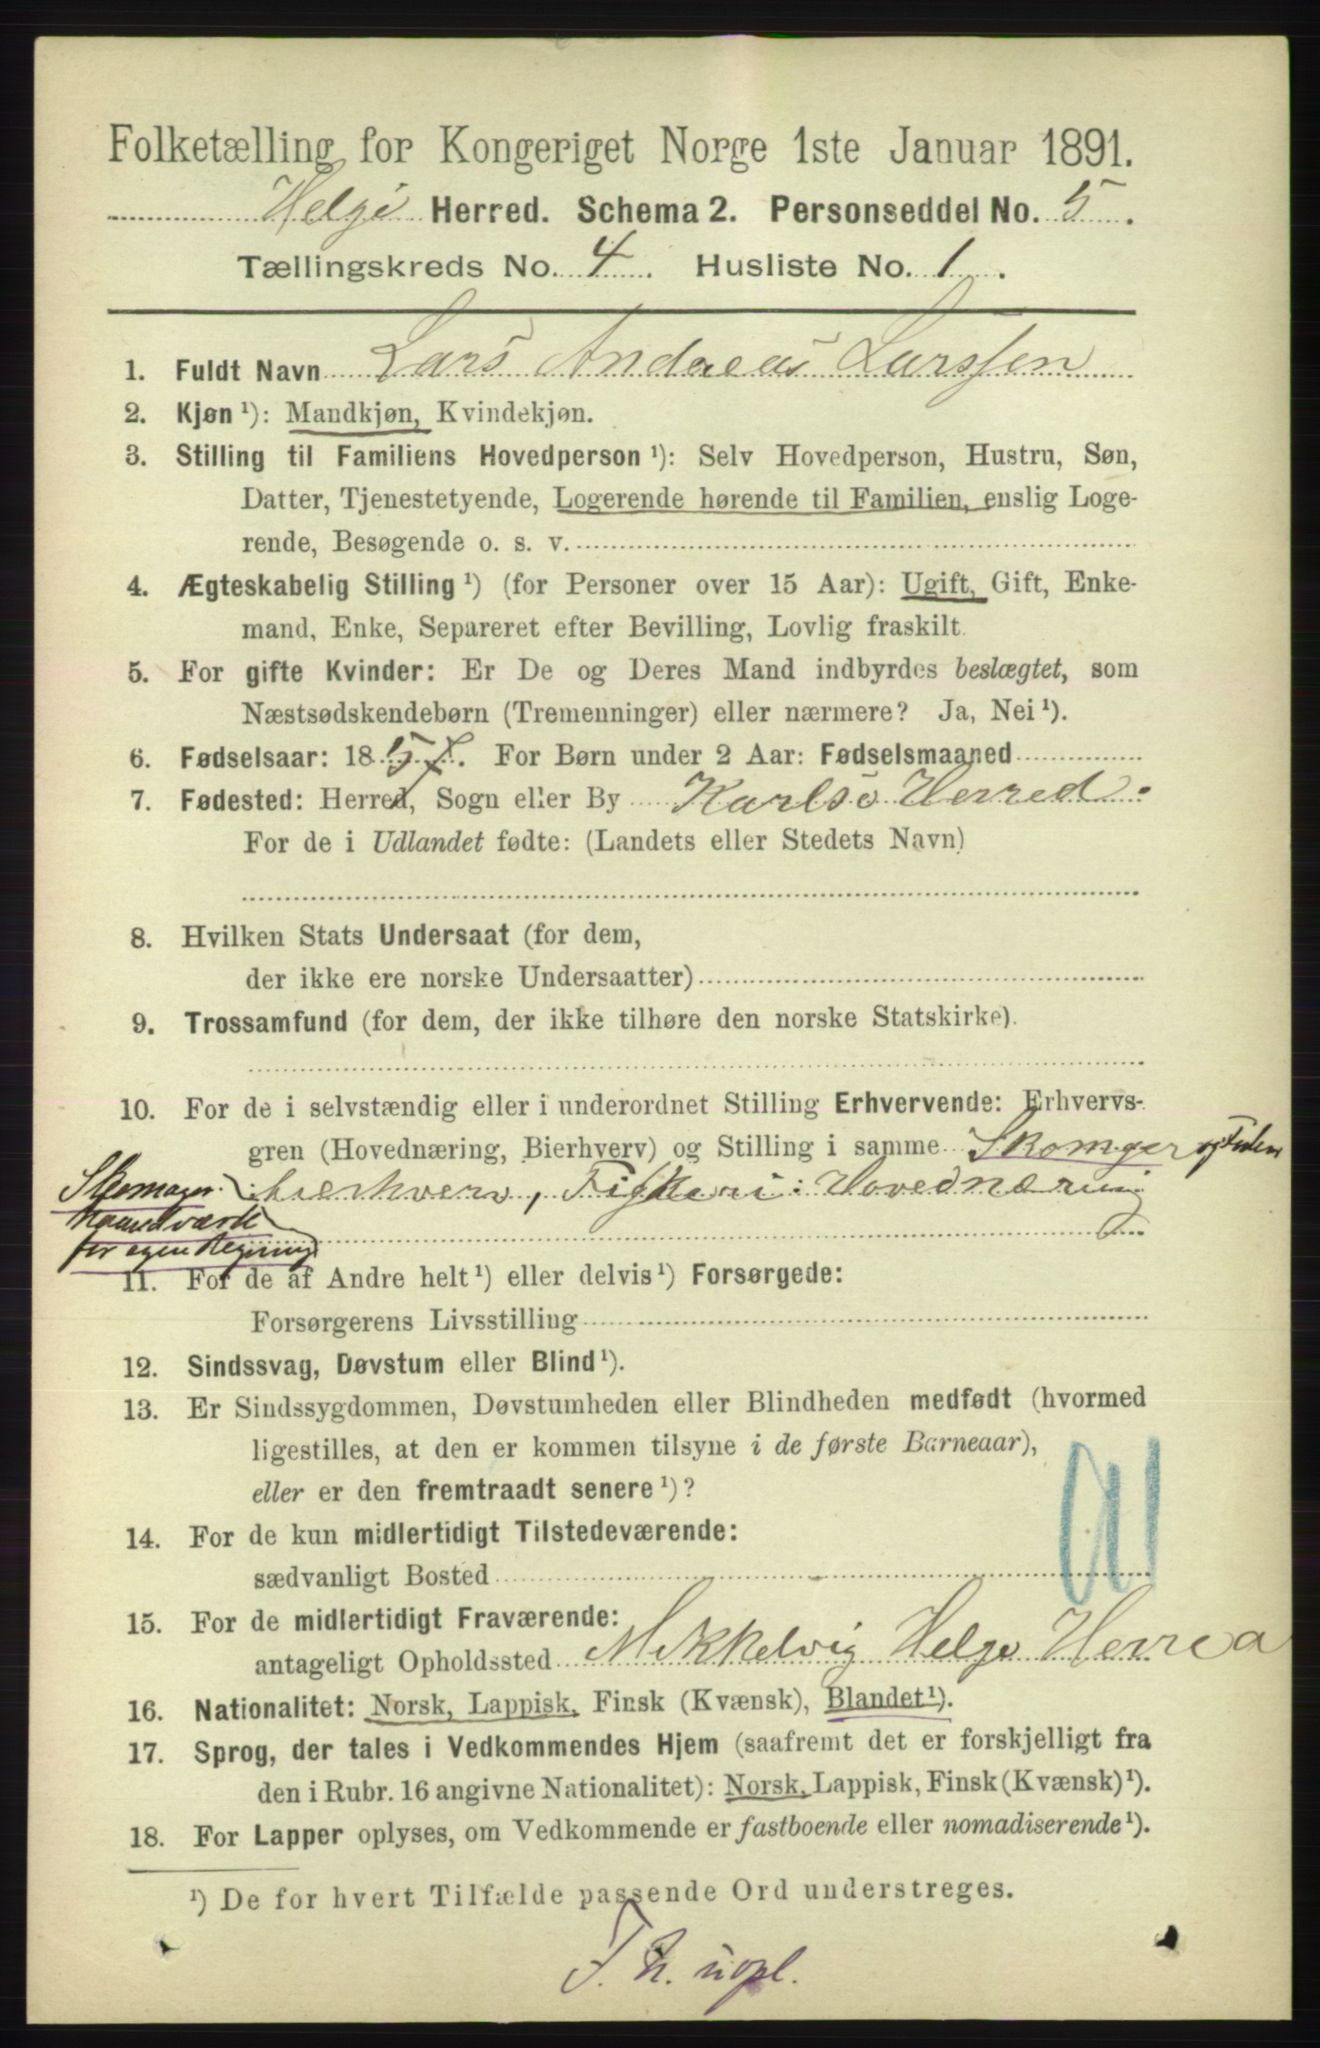 Folketælling for Kongeriget Norge 1ste Januar 1891.
Helgø Herred. Schema 2. Personseddel No. 5.
Tællingskreds No. 4. Husliste No. 1.
1. Fuldt Navn Lars Andreas Larssen
2. Kjøn ¹): Mandkjøn, Kvindekjøn.
3. Stilling til Familiens Hovedperson ¹): Selv Hovedperson, Hustru, Søn,
Datter, Tjenestetyende, Logerende hørende til Familien, enslig Loge-
rende, Besøgende o. s. v.
4. Ægteskabelig Stilling ¹) (for Personer over 15 Aar): Ugift, Gift, Enke-
mand, Enke, Separeret efter Bevilling, Lovlig fraskilt.
5. For gifte Kvinder: Er De og Deres Mand indbyrdes beslægtet, som
Næstsødskendebørn (Tremenninger) eller nærmere? Ja, Nei ¹).
6. Fødselsaar: 185. For Børn under 2 Aar: Fødselsmaaned
7. Fødested: Herred, Sogn eller By Karlsø Herred.
For de i Udlandet fødte: (Landets eller Stedets Navn)
8. Hvilken Stats Undersaat (for dem,
der ikke ere norske Undersaatter)
9. Trossamfund (for dem, der ikke tilhøre den norske Statskirke).
10. For de i selvstændig eller i underordnet Stilling Erhvervende: Erhvervs-
gren (Hovednæring, Bierhverv) og Stilling i samme Skomger
Skomager bierhverv, Fiskeri: Hovednæring
Haandværk
for egen Regning
11. For de af Andre helt ¹) eller delvis ¹) Forsørgede:
Forsørgerens Livsstilling
12. Sindssvag, Døvstum eller Blind ¹).
13. Er Sindssygdommen, Døvstumheden eller Blindheden medfødt (hvormed
ligestilles, at den er kommen tilsyne i de første Barneaar),
eller er den fremtraadt senere ¹)?
14. For de kun midlertidigt Tilstedeværende:
sædvanligt Bosted
15. For de midlertidigt Fraværende:
antageligt Opholdssted Mikkelvig Helgø Herred
16. Nationalitet: Norsk, Lappisk, Finsk (Kvænsk), Blandet ¹).
17. Sprog, der tales i Vedkommendes Hjem (saafremt det er forskjelligt fra
den i Rubr. 16 angivne Nationalitet): Norsk, Lappisk, Finsk (Kvænsk) ¹).
18. For Lapper oplyses, om Vedkommende er fastboende eller nomadiserende ¹).
¹) De for hvert Tilfælde passende Ord understreges.